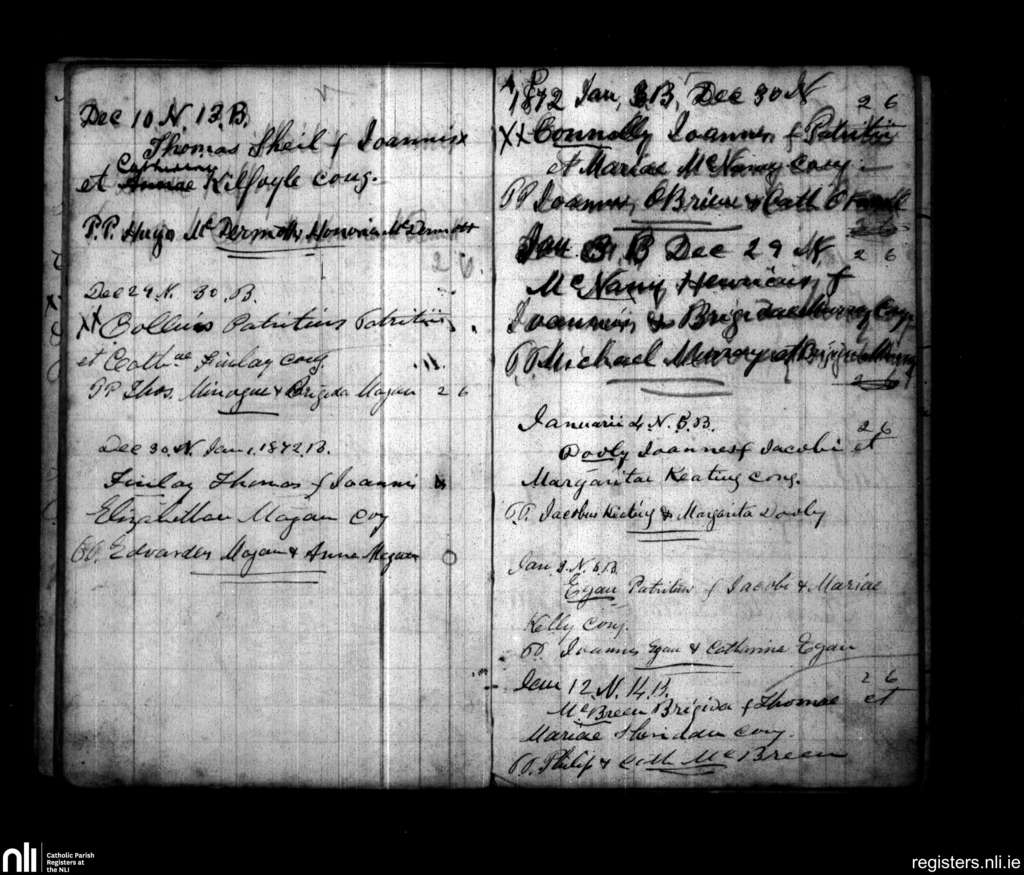 Dec 10 N. 13. B.
Thomas Sheil f Ioannis
Catherinae
et Annae Kilfoyle cong.
P.P. Hugo McDermott Honoria McDermott
2 6.
Dec 29 N. 30. B.
XX Collins Patritius Patritii
et Cathae Finlay cong.
PP Thos. Minogue & Brigida Magan 2 6
Dec 30, N. Jan 1. 1872. B.
Finlay Thomas f Ioannis &
Elizabethae Magan coy
PP. Edvardus Magan & Anna Magan
1872 Jan, 3. B, Dec 30 N
2 6
XX Connolly Ioannes f Patritii
et Mariae McNamy cong
PP Ioannes OBrien & Cath
Jan 3. B Dec 29 N
2 6
McNamy Henricus f
Ioannis & Brigidae Murray Cong
PP Michael Murray et Brigida Murray
2 6
Januarii 4. N. 5. B.
2 6
Dooly Ioannes f Iacobi et
Margaritae Keating cong.
P.P. Iacobus Keating & Margarita Dooly
Jan. 3. N. 6. B.
Egan Patritius f Iacobi & Mariae
Kelly cong.
PP. Ioannes Egan & Catherina Egan
2 6
Jan 12. N. 14. B.
McBreen Brigida f Thomae et
Mariae Sheridan cong.
PP. Philip & Cath McBreen
nli
Catholic Parish
Registers at
the NLI
registers.nli.ie